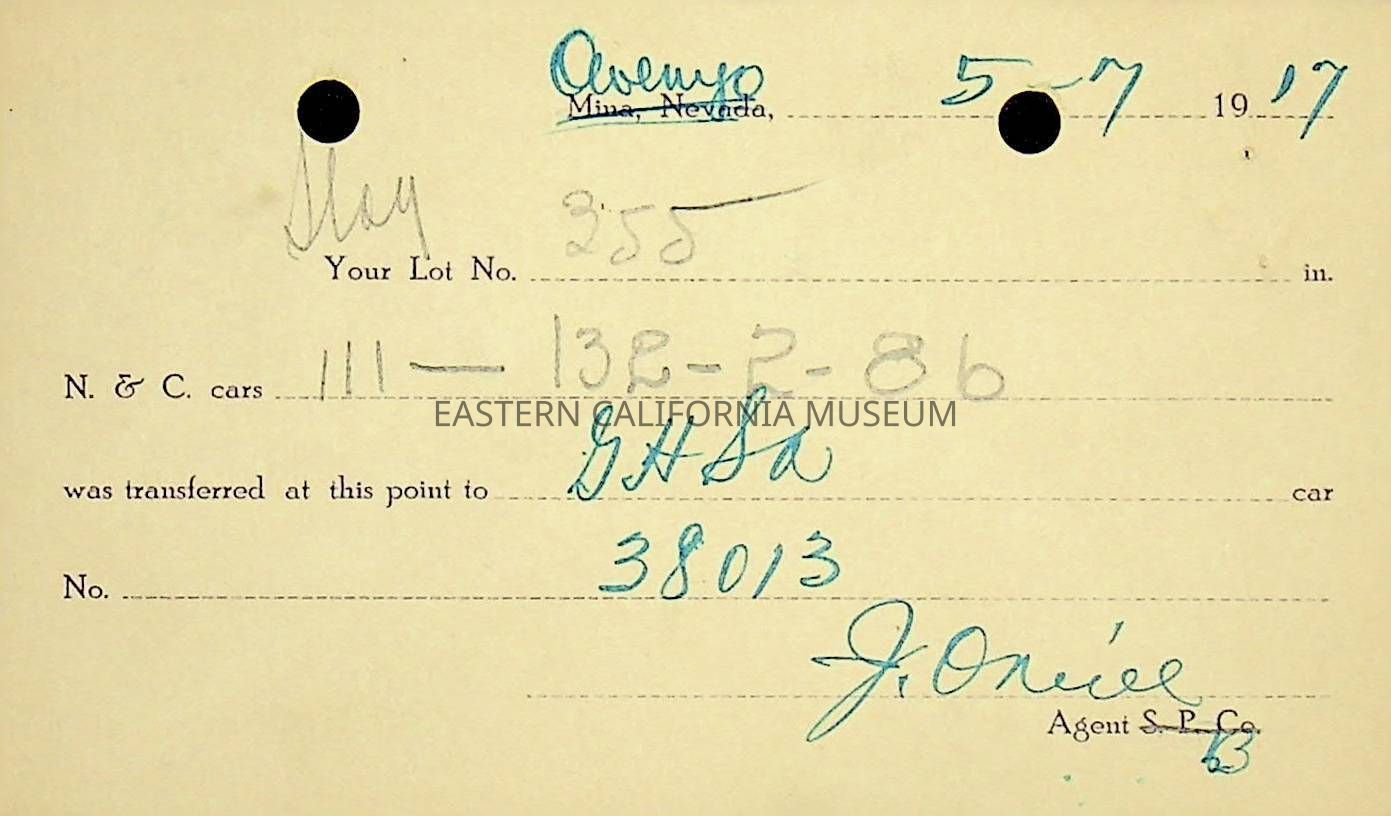 Owenyo
Mina, Nevada, 5-7 1917
Slag 355
Your Lot No. in.
N. & C. cars 111 — 132-2-86
EASTERN CALIFORNIA MUSEUM
was transferred at this point to GHSa car
No. 38013
J. Oneill
Agent S. P. Co.
B